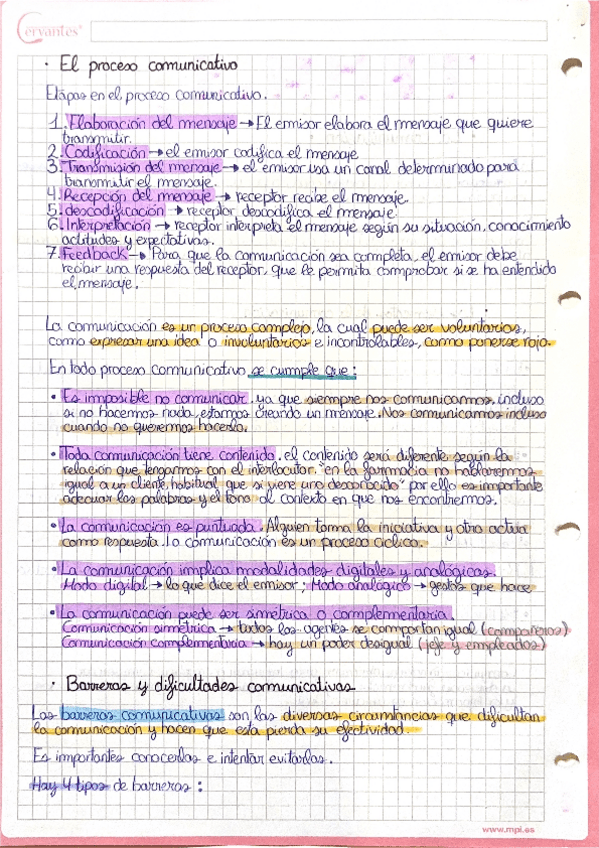 Cervantes
· El proceso comunicativo
Etapas en el proceso comunicativo.
1. Elaboración del mensaje → El emisor elabora el mensaje que quiere
transmitir.
2. Codificación → el emisor codifica el mensaje
3. Transmisión del mensaje → el emisor usa un canal determinado para
transmitir el mensaje.
4. Recepción del mensaje → receptor recibe el mensaje.
5. descodificación → receptor descodifica el mensaje
6. Interpretación → receptor interpreta el mensaje según su situación, conocimiento
actitudes y expectativas.
7. Feedback → Para que la comunicación sea completa, el emisor debe
recibir una respuesta del receptor, que le permita comprobar si se ha entendido
el mensaje.
La comunicación es un proceso complejo, la cual puede ser voluntarios,
como expresar una idea o involuntarios e incontrolables, como ponerse rojo.
En todo proceso comunicativo se cumple que:
· Es imposible no comunicar, ya que siempre nos comunicamos, incluso
si no hacemos nada, estamos creando un mensaje. Nos comunicamos incluso
cuando no queremos hacerlo.
· Toda comunicación tiene contenido, el contenido será diferente según la
relación que tengamos con el interlocutor. "en la farmacia no hablaremos
igual a un cliente habitual que si viene uno desconocido" por ello es importante
adecuar las palabras y el tono al contexto en que nos encontremos.
· La comunicación es puntuada. Alguien toma la iniciativa y otro actúa
como respuesta. la comunicación es un proceso cíclico.
· La comunicación implica modalidades digitales y analógicas.
Modo digital → lo que dice el emisor; Modo analógico → gestos que hace
· La comunicación puede ser simétrica o complementaria.
Comunicación simétrica → todos los agentes se comportan igual (compañeros)
Comunicación complementaria → hay un poder desigual (jefe y empleados)
· Barreras y dificultades comunicativas
Las barreras comunicativas son las diversas circunstancias que dificultan
la comunicación y hacen que esta pierda su efectividad.
Es importantes conocerlas e intentar evitarlas.
Hay 4 tipos de barreras:
www.mpi.es